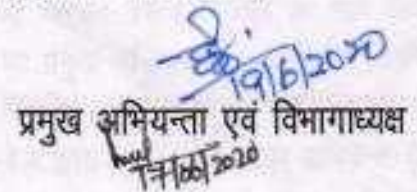 19/6/2020
प्रमुख अभियन्ता एवं विभागाध्यक्ष
17/06/2020